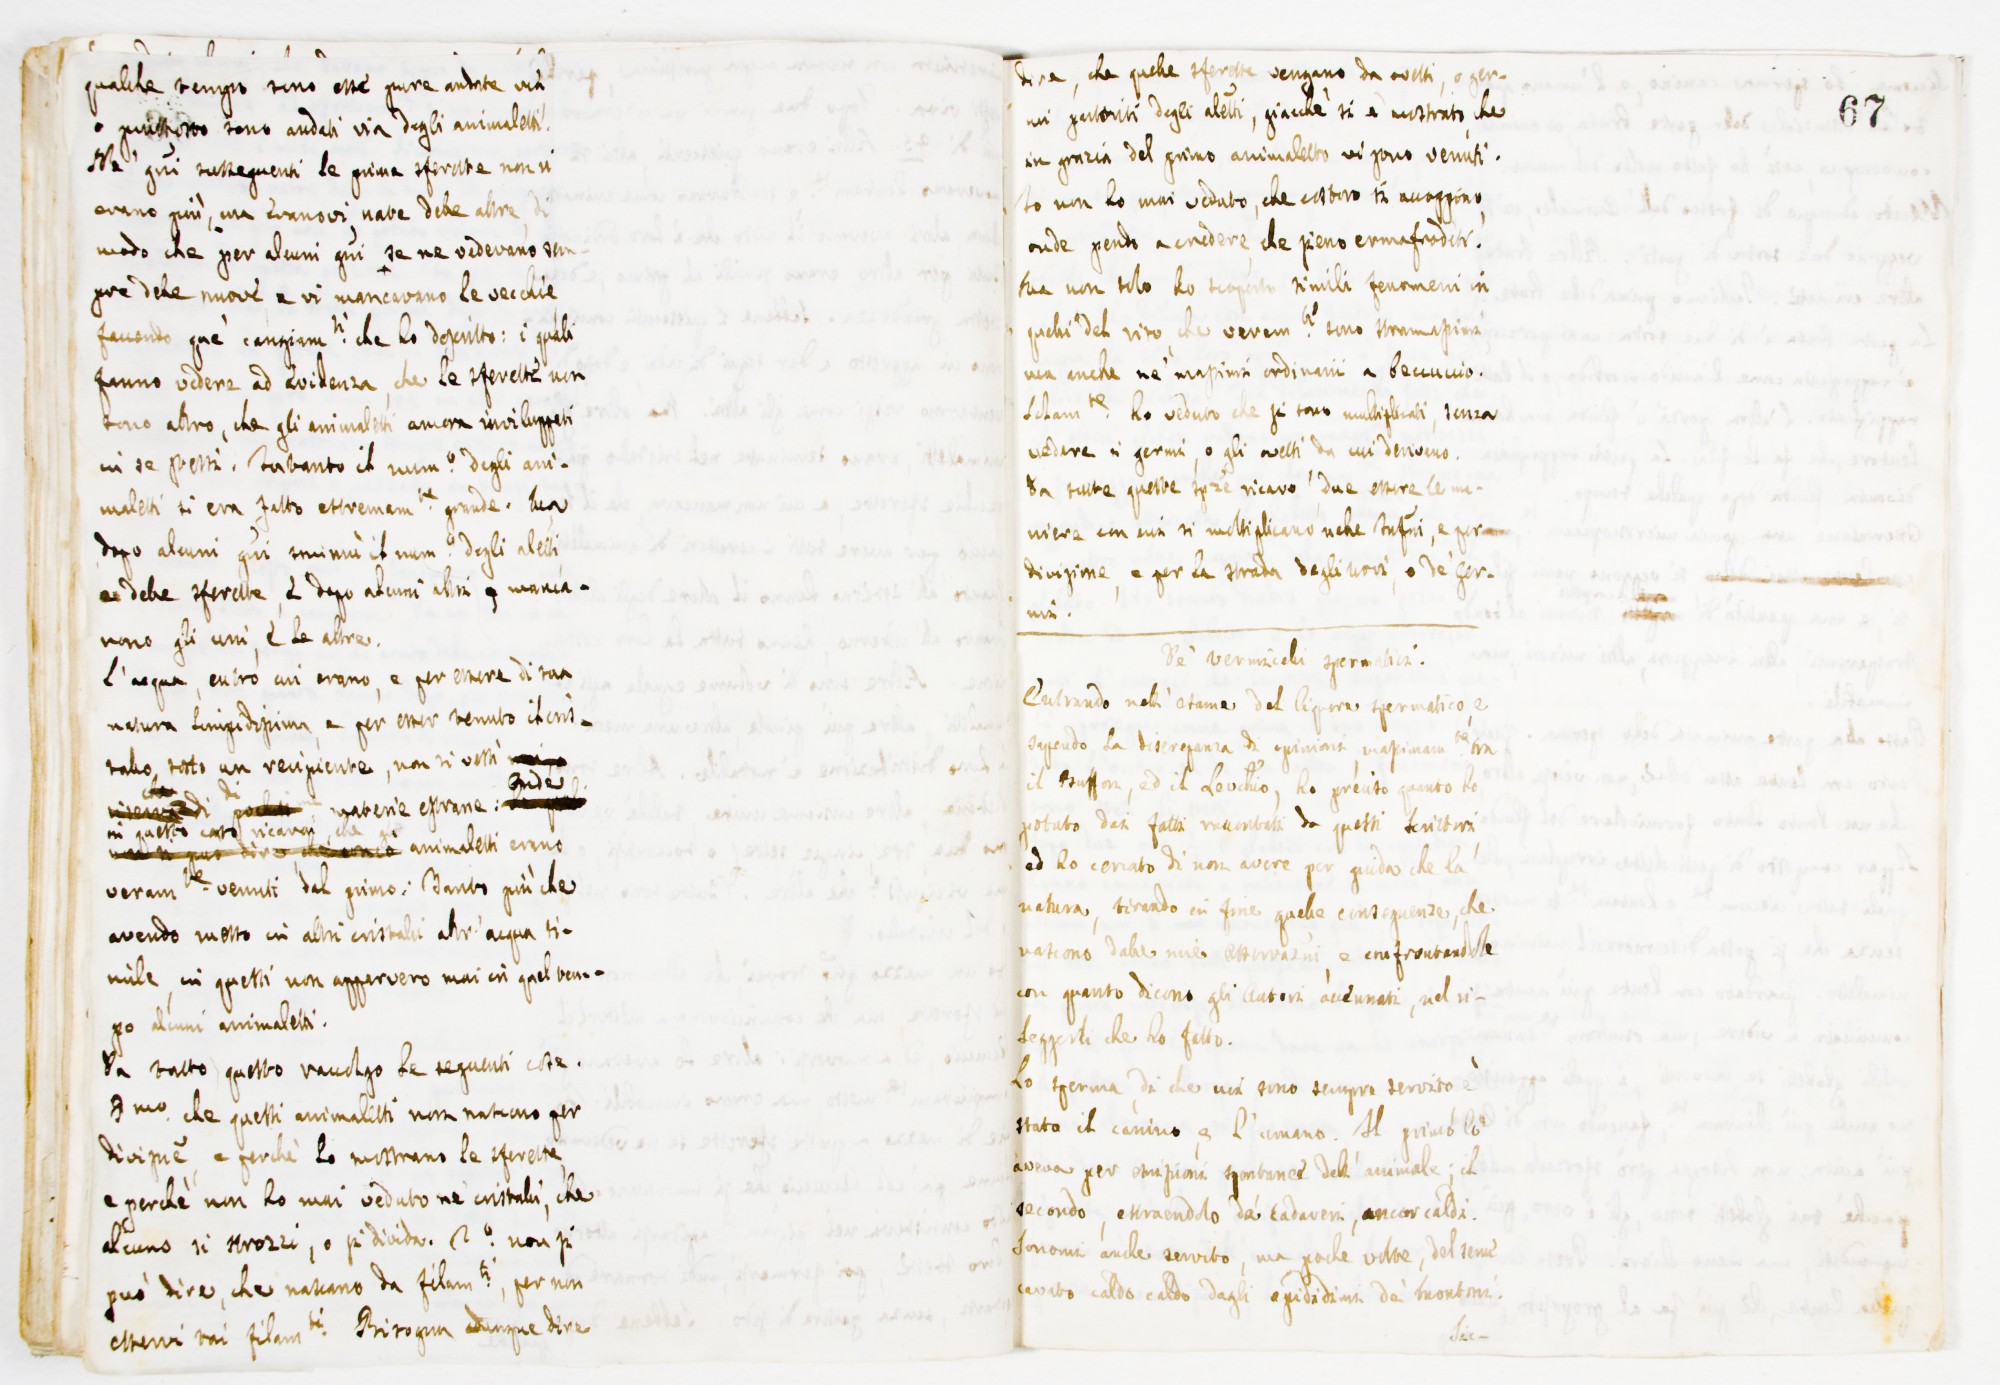 qualche tempo sono esse pure andate via
o piuttosto sono andati via degli animaletti.
Ne' gni susseguenti le prime sferette non vi
erano più, ma eranovi nate delle altre, di
modo che per alcuni gni se ne vedevano sem-
pre delle nuove e vi mancavano le vecchie
facendo que' cangiam.ti che ho descritto: i quali
fanno vedere ad evidenza, che le sferette non
sono altro, che gli animaletti ancora inviluppati
in se stessi. Intanto il num.o degli ani-
maletti si era fatto estremam.te grande. Ma
dopo alcuni gni sminuì il num.o degli aletti
e delle sferette, e dopo alcuni altri manca-
rono gli uni, e le altre.
L'acqua, entro cui erano, e per essere di sua
natura limpidissima, e per esser tenuto il cris-
tallo sotto un recipiente, non si vestì
di materie estranee: Onde
in questo caso ricavai, che gli animaletti erano
veram.te venuti dal primo: Tanto più che
avendo messo in altri cristalli altr'acqua si-
mile, in questi non apparvero mai in quel tem-
po alcuni animaletti.
Da tutto questo raccolgo le seguenti cose.
P.mo che questi animaletti non nascono per
divisne, e perchè lo mostrano le sferette,
e perchè non ho mai veduto ne' cristalli, che
alcuno si strozzi, o si divida. 2.o non si
può dire, che nascano da filam.ti, per non
esservi tai filam.ti. Bisogna dunque dire
67
dire, che quelle sferette vengano da ovetti, o ger-
mi partoriti degli aletti, giacchè si è mostrato, che
in grazia del primo animaletto vi sono venuti.
Io non ho mai veduto, che costoro si accoppino,
onde pendo a credere, che sieno ermafroditi.
Ma non solo ho scoperto simili fenomeni in
quelli del riso, che veram.te sono strani
ma anche ne' ordinarii a beccuccio.
Solam.te ho veduto che si sono multiplicati, senza
vedere i germi, o gli ovetti da cui derivino.
Da tutte queste spze ricavo due essere le ma-
niere con cui si moltiplicano nelle Infni, e per
divisione, e per la strada degli uovi, o de' Ger-
mi.
De' vermicelli spermatici.
Entrando nell'esame del liquore spermatico, e
sapendo la discrepanza di opinioni, massimam.te tra
il Buffon, ed il Levehhio, ho preso quanto ho
potuto dai fatti raccontati da questi scrittori
ed ho cercato di non avere per guida che la
natura, tirando in fine quelle conseguenze, che
nascono dalle mie osservazni, e confrontandole
con quanto dicono gli Autori accennati, nel ri-
leggerli che ho fatto.
Lo sperma, di che mi sono sempre servito è
stato il canino, e l'umano. Il primo lo
aveva per emissioni spontanee dell'animale; il
secondo, estraendolo da' cadaveri, ancor caldi.
Sonomi anche servito, ma poche volte, del seme
cavato caldo caldo dagli epididimi de' montoni.